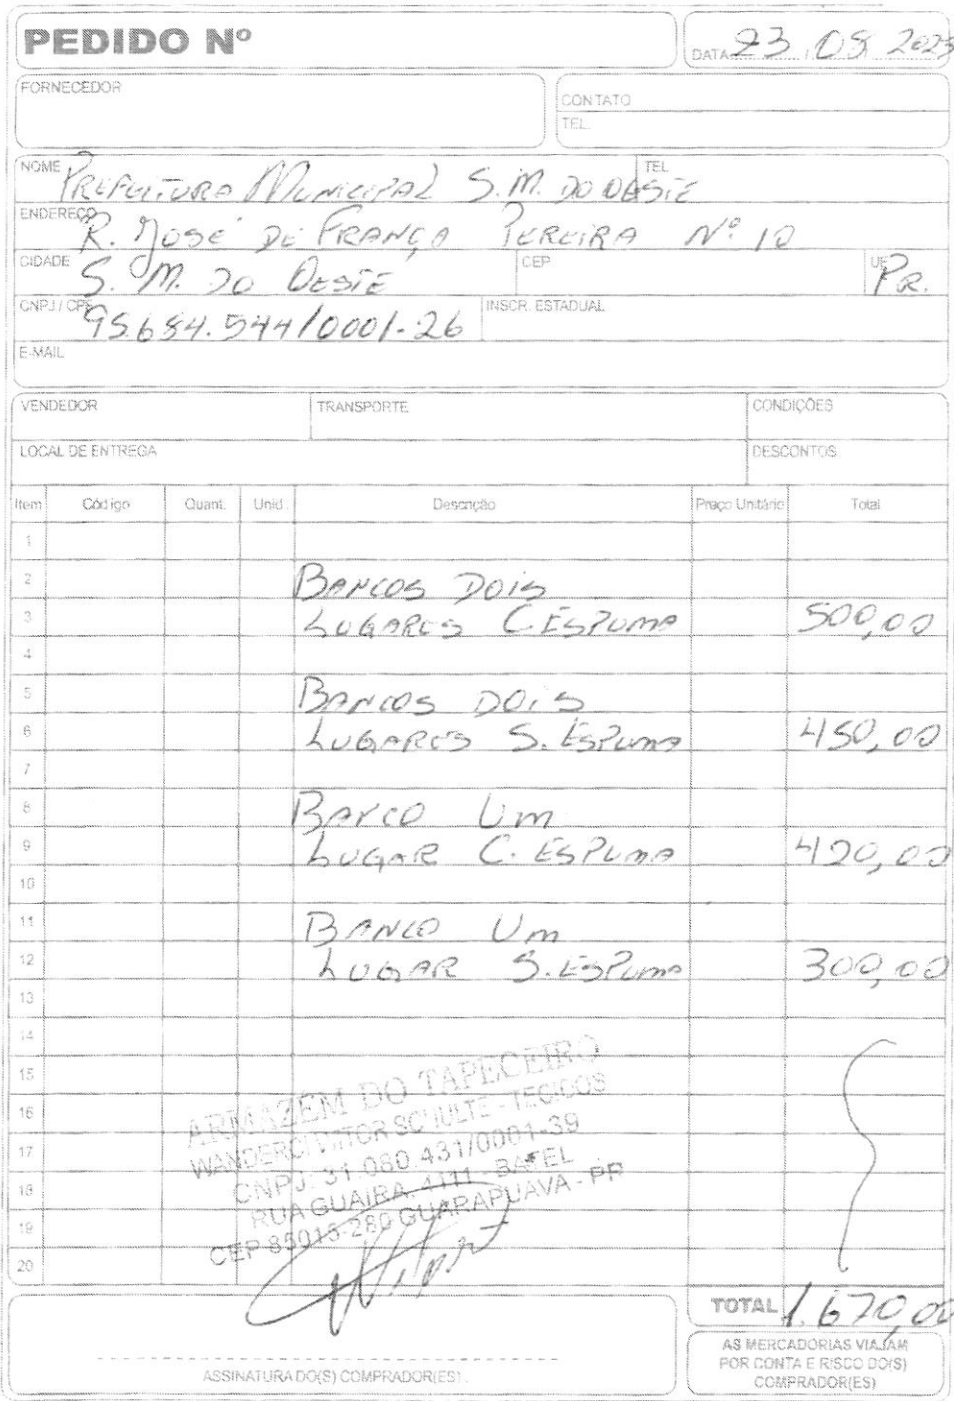 PEDIDO Nº
DATA 23 / 08 / 2023
FORNECEDOR
CONTATO
TEL.
NOME PREFEITURA MUNICIPAL S. M. DO OESTE TEL
ENDEREÇO R. JOSÉ DE FRANÇA PEREIRA Nº 10
CIDADE S. M. DO OESTE CEP UF PR.
CNPJ / CPF 95.684.544/0001-26 INSCR. ESTADUAL
E-MAIL
VENDEDOR TRANSPORTE CONDIÇÕES
LOCAL DE ENTREGA DESCONTOS
Item Código Quant. Unid. Descrição Preço Unitário Total
1
2 BANCOS DOIS
3 LUGARES C. ESPUMA 500,00
4
5 BANCOS DOIS
6 LUGARES S. ESPUMA 450,00
7
8 BANCO UM
9 LUGAR C. ESPUMA 420,00
10
11 BANCO UM
12 LUGAR S. ESPUMA 300,00
13
14
15
16
17
18
19
20
ARMAZEM DO TAPECEIRO
WANDERCI VITOR SCHULTE - TECIDOS
CNPJ: 31.080.431/0001-39
RUA GUAIRA, 4111 - BATEL
CEP 85015-280 GUARAPUAVA - PR
TOTAL 1.670,00
ASSINATURA DO(S) COMPRADOR(ES)
AS MERCADORIAS VIAJAM
POR CONTA E RISCO DO(S)
COMPRADOR(ES)